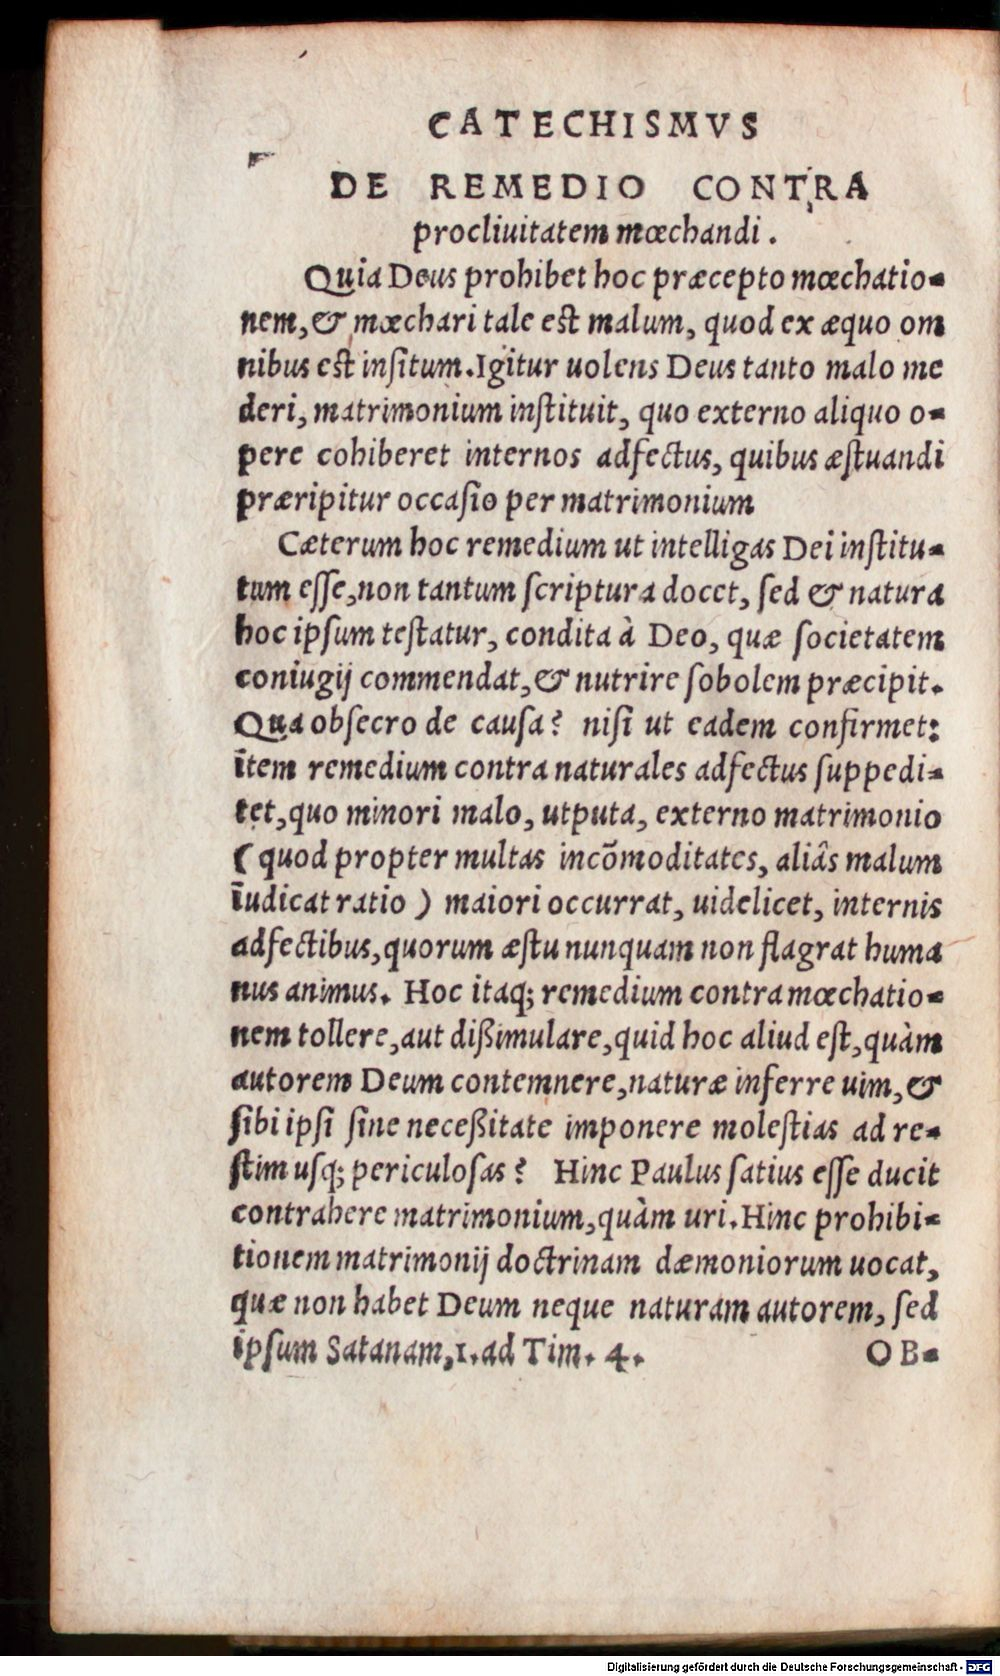 CATECHISMVS
DE REMEDIO CONTRA
procliuitatem mœchandi.
Quia Deus prohibet hoc præcepto mœchatio-
nem, & mœchari tale est malum, quod ex æquo om
nibus est insitum. Igitur uolens Deus tanto malo me
deri, matrimonium instituit, quo externo aliquo o-
pere cohiberet internos adfectus, quibus æstuandi
præripitur occasio per matrimonium
Cæterum hoc remedium ut intelligas Dei institu-
tum esse, non tantum scriptura docet, sed & natura
hoc ipsum testatur, condita à Deo, quæ societatem
coniugij commendat, & nutrire sobolem præcipit.
Qua obsecro de causa? nisi ut eadem confirmet:
item remedium contra naturales adfectus suppedi-
tet, quo minori malo, utputa, externo matrimonio
(quod propter multas incõmoditates, aliâs malum
iudicat ratio) maiori occurrat, uidelicet, internis
adfectibus, quorum æstu nunquam non flagrat huma
nus animus. Hoc itaq; remedium contra mœchatio-
nem tollere, aut dißimulare, quid hoc aliud est, quàm
autorem Deum contemnere, naturæ inferre uim, &
sibi ipsi sine neceßitate imponere molestias ad re-
stim usq; periculosas? Hinc Paulus satius esse ducit
contrahere matrimonium, quàm uri. Hinc prohibi-
tionem matrimonij doctrinam dæmoniorum uocat,
quæ non habet Deum neque naturam autorem, sed
ipsum Satanam, 1. ad Tim. 4. OB-
Digitalisierung gefördert durch die Deutsche Forschungsgemeinschaft - DFG